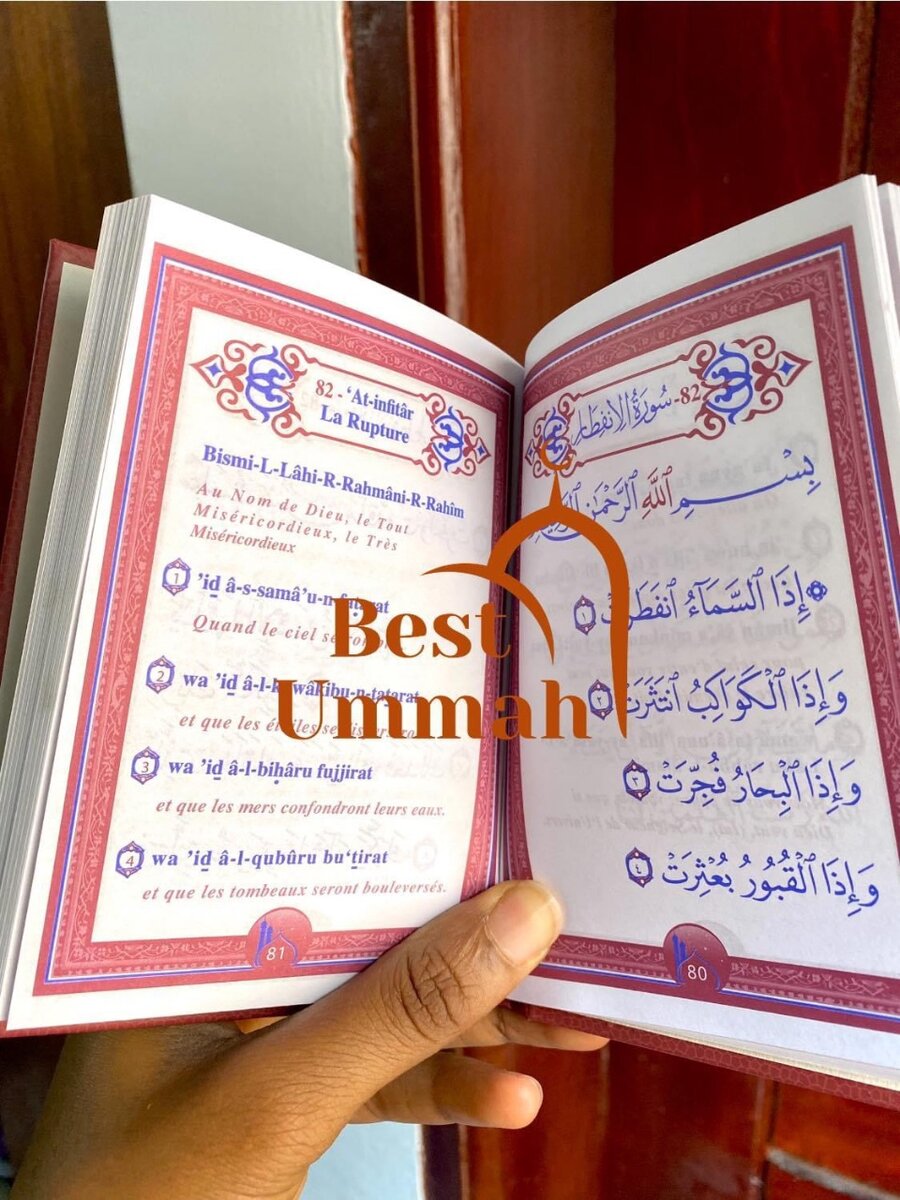 82 - ‘At-infitâr
La Rupture
Bismi-L-Lâhi-R-Rahmâni-R-Rahîm
Au Nom de Dieu, le Tout
Miséricordieux, le Très
Miséricordieux
1 ’iḏ â-s-samâ’u-n-faṭarat
Quand le ciel se
2 wa ’iḏ â-l-kawâkibu-n-taṯarat
et que les étoiles se
3 wa ’iḏ â-l-biḥâru fujjirat
et que les mers confondront leurs eaux.
4 wa ’iḏ â-l-qubûru bu‘ṯirat
et que les tombeaux seront bouleversés.
81
82-سُورَةُ الِانفِطَارِ
بِسْمِ ٱللَّهِ ٱلرَّحْمَٰنِ ٱلرَّحِيمِ
إِذَا ٱلسَّمَآءُ ٱنفَطَرَتْ ١
وَإِذَا ٱلْكَوَاكِبُ ٱنتَثَرَتْ ٢
وَإِذَا ٱلْبِحَارُ فُجِّرَتْ ٣
وَإِذَا ٱلْقُبُورُ بُعْثِرَتْ ٤
80
Best
Ummah